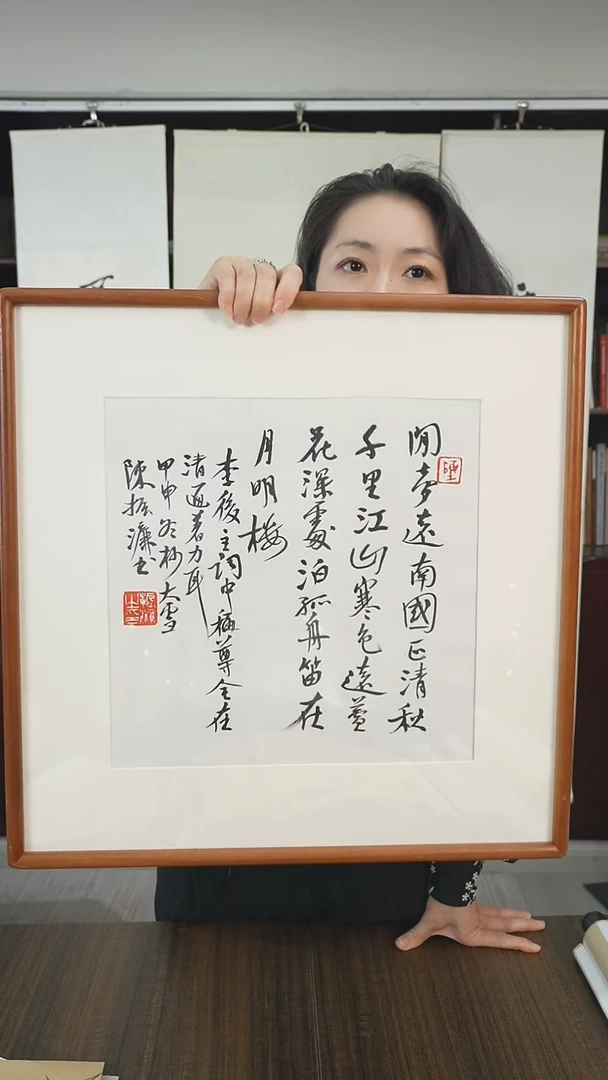 閒夢遠南國正清秋
千里江山寒色遠蘆
花深處泊孤舟笛在
月明樓
李後主詞中稱尊全在
清通著力耳
甲申冬杪大雪
陳振濂書
陳